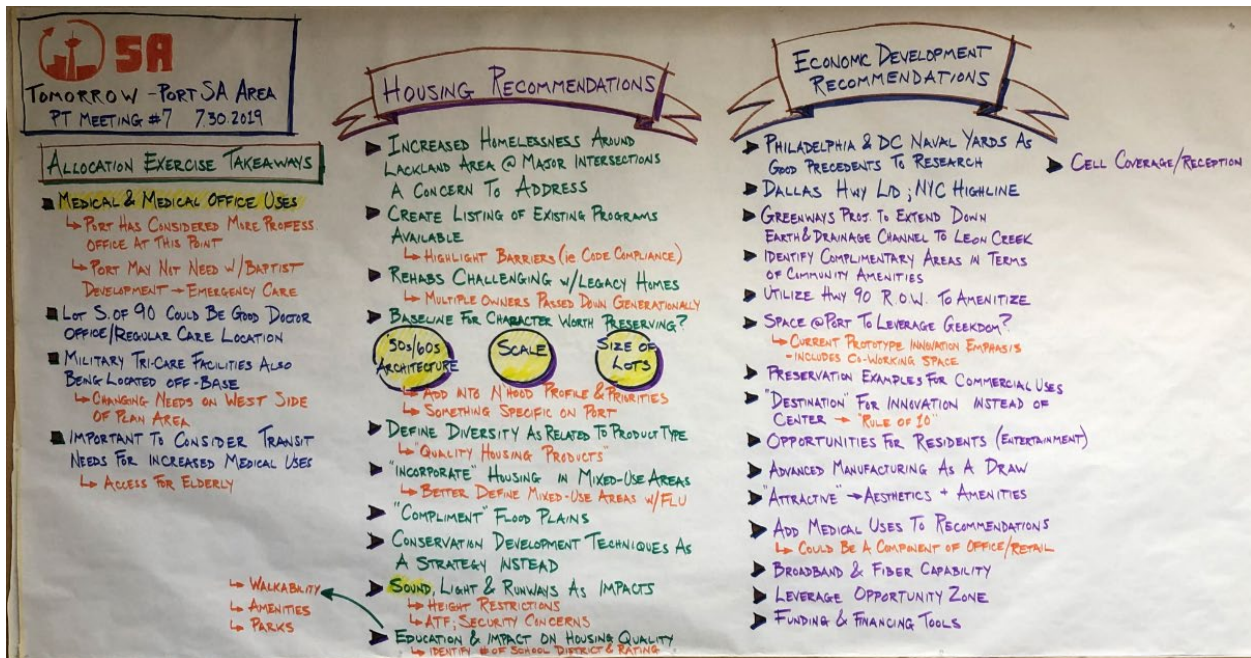 SA
TOMORROW - PORT SA AREA
PT MEETING #7 7.30.2019
ALLOCATION EXERCISE TAKEAWAYS
MEDICAL & MEDICAL OFFICE USES
PORT HAS CONSIDERED MORE PROFESS.
OFFICE AT THIS POINT
PORT MAY NOT NEED W/BAPTIST
DEVELOPMENT → EMERGENCY CARE
LOT S. OF 90 COULD BE GOOD DOCTOR
OFFICE/REGULAR CARE LOCATION
MILITARY TRI-CARE FACILITIES ALSO
BEING LOCATED OFF-BASE
CHANGING NEEDS ON WEST SIDE
OF PLAN AREA
IMPORTANT TO CONSIDER TRANSIT
NEEDS FOR INCREASED MEDICAL USES
ACCESS FOR ELDERLY
HOUSING RECOMMENDATIONS
INCREASED HOMELESSNESS AROUND
LACKLAND AREA @ MAJOR INTERSECTIONS
A CONCERN TO ADDRESS
CREATE LISTING OF EXISTING PROGRAMS
AVAILABLE
HIGHLIGHT BARRIERS (IE CODE COMPLIANCE)
REHABS CHALLENGING W/LEGACY HOMES
MULTIPLE OWNERS PASSED DOWN GENERATIONALLY
BASELINE FOR CHARACTER WORTH PRESERVING?
'50s/60s
ARCHITECTURE
SCALE
SIZE OF
LOTS
ADD INTO N'HOOD PROFILE & PRIORITIES
SOMETHING SPECIFIC ON PORT
DEFINE DIVERSITY AS RELATED TO PRODUCT TYPE
"QUALITY HOUSING PRODUCTS"
"INCORPORATE" HOUSING IN MIXED-USE AREAS
BETTER DEFINE MIXED-USE AREAS W/FLU
"COMPLIMENT" FLOOD PLAINS
CONSERVATION DEVELOPMENT TECHNIQUES AS
A STRATEGY INSTEAD
SOUND, LIGHT & RUNWAYS AS IMPACTS
HEIGHT RESTRICTIONS
ATF; SECURITY CONCERNS
EDUCATION & IMPACT ON HOUSING QUALITY
IDENTIFY # OF SCHOOL DISTRICT & RATING
WALKABILITY
AMENITIES
PARKS
ECONOMIC DEVELOPMENT
RECOMMENDATIONS
PHILADELPHIA & DC NAVAL YARDS AS
GOOD PRECEDENTS TO RESEARCH
DALLAS HWY LID; NYC HIGHLINE
GREENWAYS PROJ. TO EXTEND DOWN
EARTH & DRAINAGE CHANNEL TO LEON CREEK
IDENTIFY COMPLIMENTARY AREAS IN TERMS
OF COMMUNITY AMENITIES
UTILIZE HWY 90 R.O.W. TO AMENITIZE
SPACE @ PORT TO LEVERAGE GEEKDOM?
CURRENT PROTOTYPE INNOVATION EMPHASIS
- INCLUDES CO-WORKING SPACE
PRESERVATION EXAMPLES FOR COMMERCIAL USES
"DESTINATION" FOR INNOVATION INSTEAD OF
CENTER → "RULE OF 10"
OPPORTUNITIES FOR RESIDENTS (ENTERTAINMENT)
ADVANCED MANUFACTURING AS A DRAW
"ATTRACTIVE" → AESTHETICS + AMENITIES
ADD MEDICAL USES TO RECOMMENDATIONS
COULD BE A COMPONENT OF OFFICE/RETAIL
BROADBAND & FIBER CAPABILITY
LEVERAGE OPPORTUNITY ZONE
FUNDING & FINANCING TOOLS
CELL COVERAGE/RECEPTION